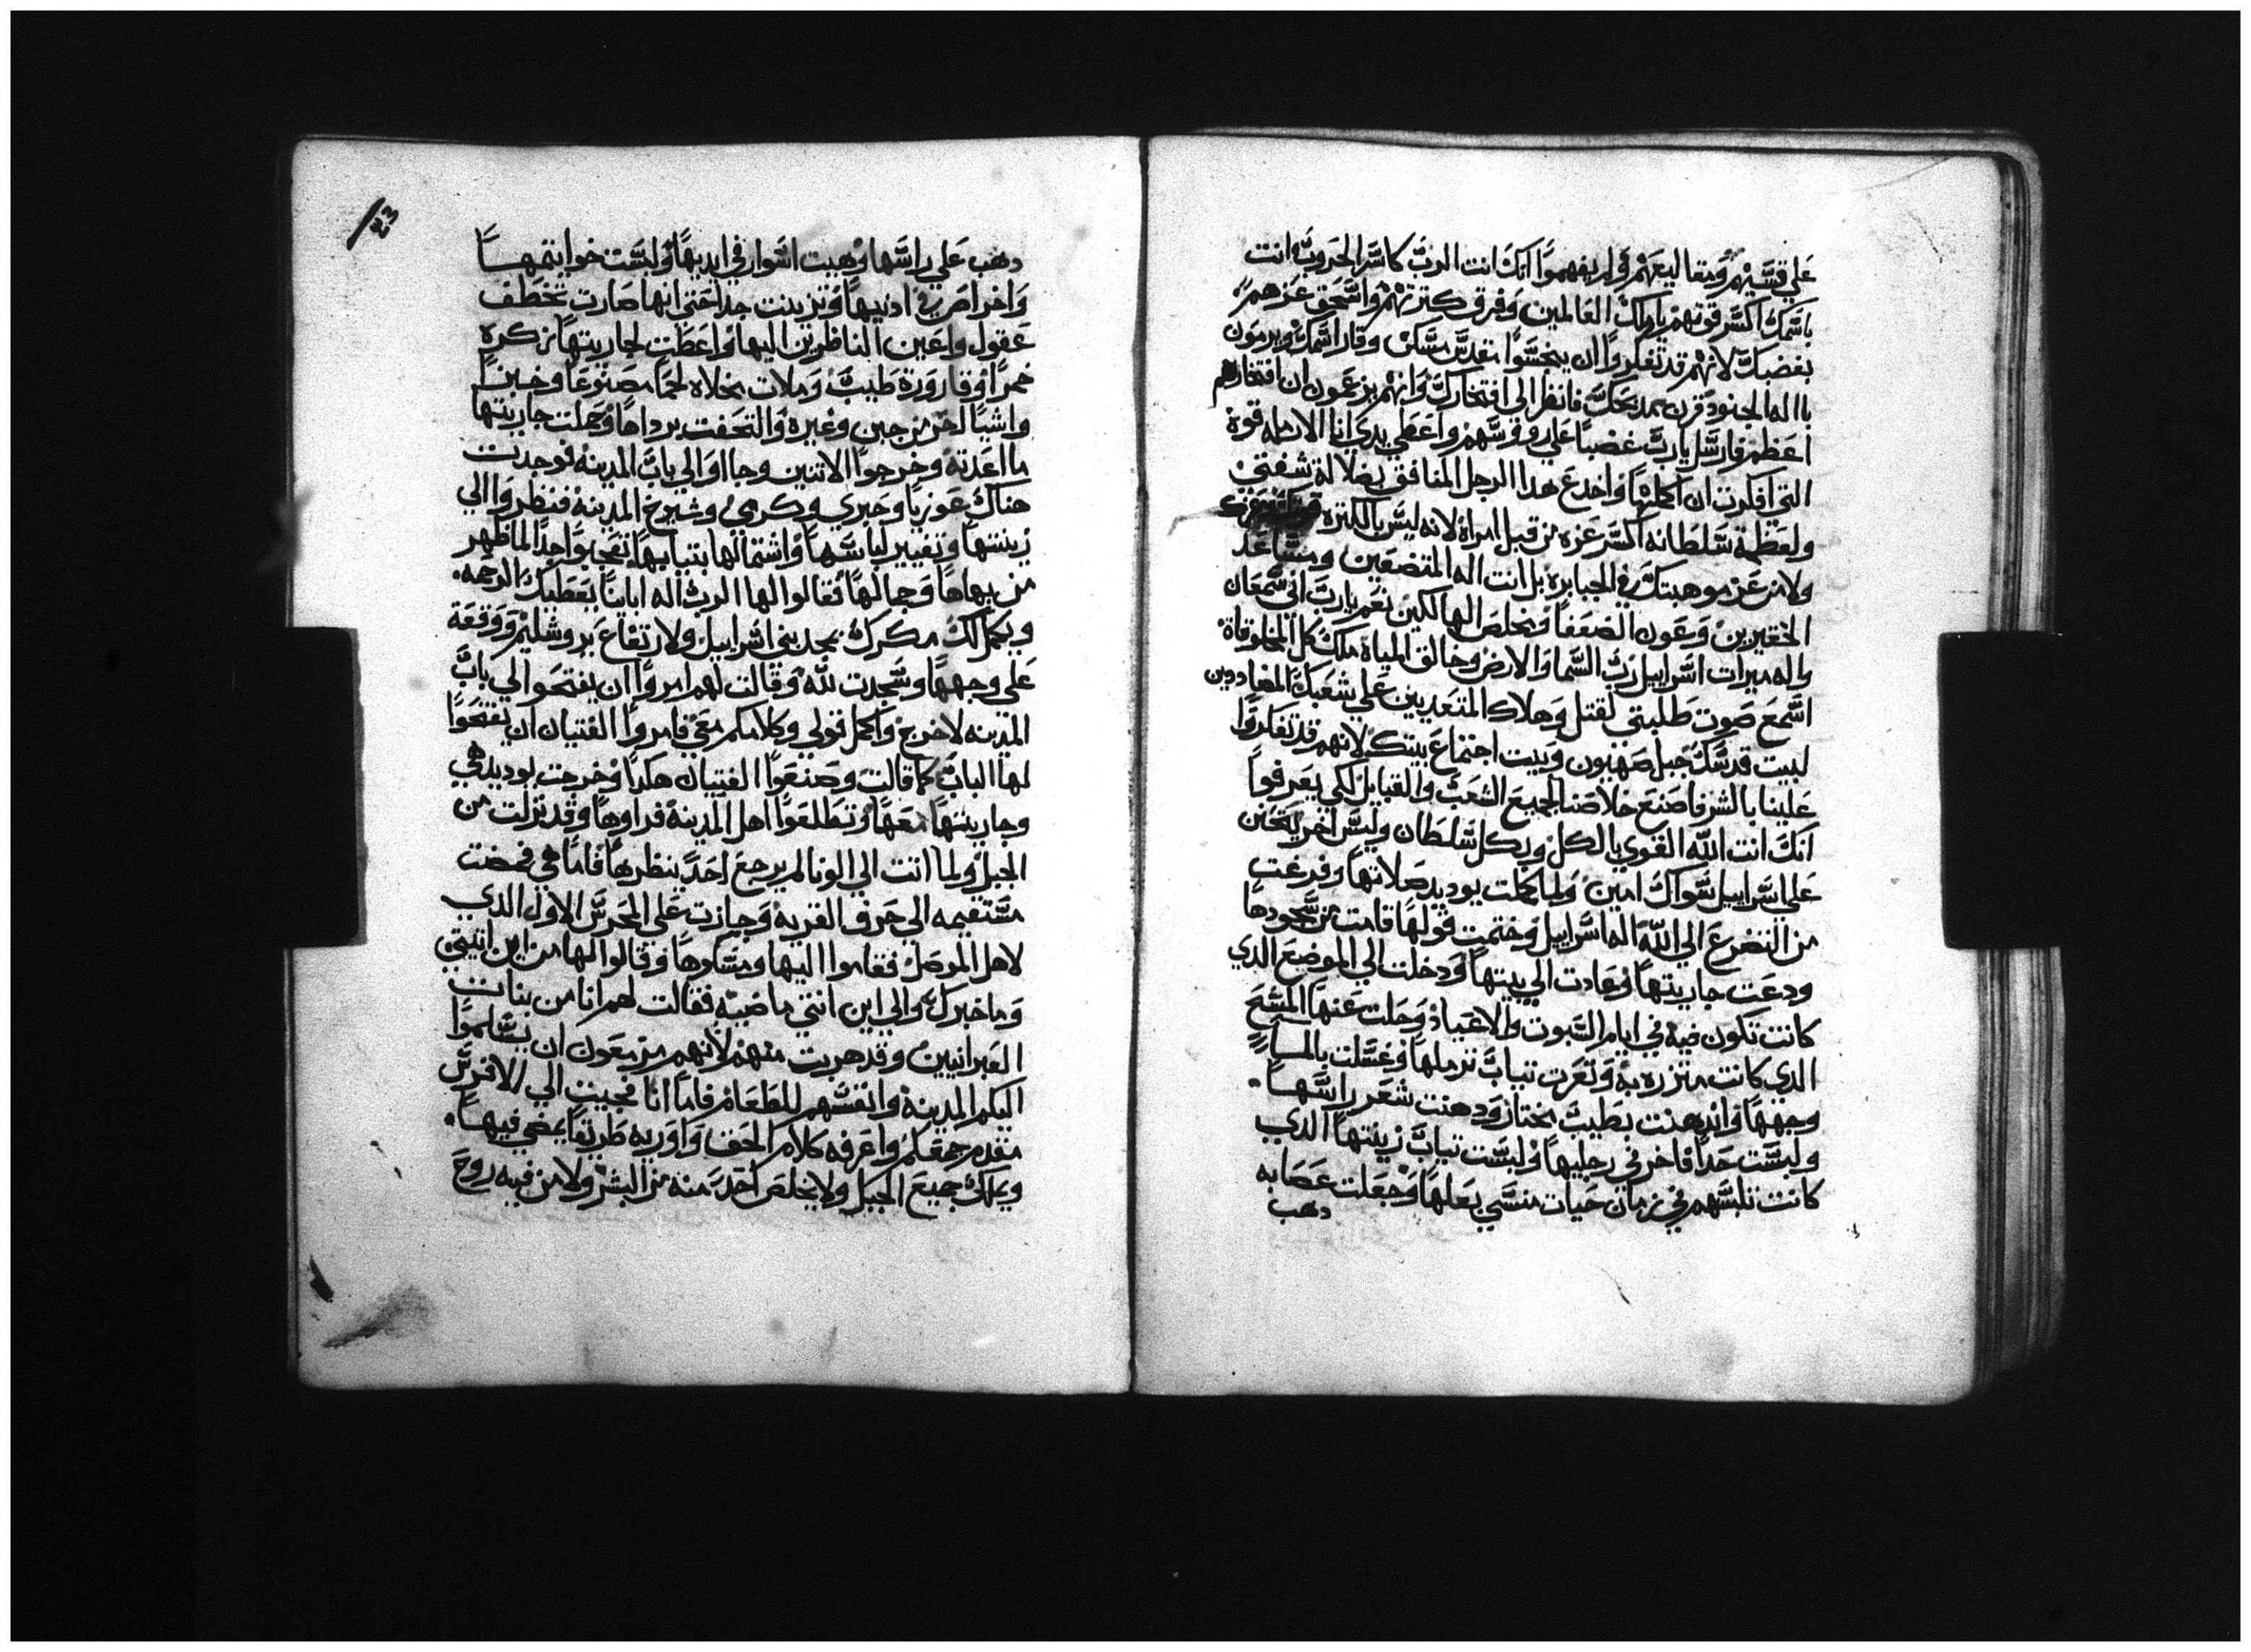 علي قسيهم ومقاليعهم ولم يفهموا انك انت الرب كاسر الحروب انت
باسمك اكسر قوتهم يا ملك العالمين وفرق كترتهم واسحق عزهم
بغضبك لانهم قد تفكروا ان ينجسوا مقدس مسكن وقار اسمك ويرمون
يا اله الجنود قرن مدبحك فانظر الي افتخارك وانهم يزعمون ان افتخارهم
اعظم فارسل يارب غضبا علي روسهم واعطي يدي انا الارمله قوة
التي افكرت ان اكملها واخدع هدا الرجل المنافق بضلالة شفتي
ولعظمة سلطانه اكسر عزه من قبل امراة لانه ليس بالكتره
ولا من عز موهبتك في الجبابره بل انت اله المتضعين ومساعد
الحقيرين وعون الضعفا ومخلص الهالكين نعم يارب اله سمعان
واله ميرات اسراييل رب السما والارض وخالق المياة ملك كل المخلوقاة
اسمع صوت طلبتي لقتل وهلاك المتعديين علي شعبك المضاددين
لبيت قدسك جبل صهيون وبيت اجتماع بيتك لانهم قد تفكروا
علينا بالشر فاصنع خلاصنا لجميع الشعب والقبايل لكي يعرفوا
انك انت الله القوي بالكل وبكل سلطان وليس اخر يتحنن
علي اسراييل سواك امين ولما كملت يوديد صلاتها وفرغت
من التضرع الي الله اله اسراييل وختمت قولها قامت من سجودها
ودعت جاريتها وعادت الي بيتها ودخلت الي الموضع الدي
كانت تكون فيه في ايام السبوت والاعياد وحلت عنها المسح
الدي كانت متزره به وتعرت تياب ترملها وغسلت بالما
وجهها واندهنت بطيب مختار ودهنت شعر راسها
ولبست حدا فاخر في رجليها ولبست تياب زينتها الدي
كانت تلبسهم في زمان حيات منسي بعلها وجعلت عصابه
دهب
٤٣
دهب علي راسها وهيت اسوار في ايديها ولبست خواتمها
واخراص في ادنيها وتزينت جدا حتي انها صارت تخطف
عقول واعين الناظرين اليها واعطت لجاريتها زكره
خمرا وقارورة طيب وملات مخلاه لحما مصنوعا وخبزا
واشيا اخر من جبن وغيره والتحفت برداها وحملت جاريتها
ما اعدته وخرجوا الاتنين وجااوا الي باب المدينه فوجدت
هناك عوزيا وحبري وكرمي وشيوخ المدينه فنظروا الي
زينتها وتغيير لباسها واشتمالها بتيابها تعجبوا جدا لما ظهر
من بهاها وجمالها فقالوا لها الرب اله اباينا يعطيك الرحمه
ويكمل لك مكرك بمجد بني اسراييل ولارتفاع يروشليم ووقعة
علي وجهها وسجدت لله وقالت لهم امروا ان يفتحوا لي باب
المدينه لاخرج واكمل قولي وكلامكم معي فامروا الفتيان ان يفتحوا
لها الباب كما قالت وصنعوا الفتيان هكدا وخرجت يوديد هي
وجاريتها معها وتطلعوا اهل المدينة فراوها وقد نزلت من
الجبل ولما اتت الي الونا لم يرجع احد ينظرها فاما هي فمضت
مستقيمه الي حرف القريه وجازت علي المحرس الاول الدي
لاهل الموصل فقاموا اليها ومسكوها وقالوا لها من اين اتيتي
وما خبرك والي اين انتي ماضيه فقالت لهم انا من بنات
العبرانيين وقد هربت منهم لانهم مزمعون ان يسلموا
اليكم المدينه وانفسهم للطعام فاما انا فجيت الي الافرس
مقدم جمعكم واعرفه كلام الحق واوريه طريقا يمضي فيها
ويملك جميع الجبل ولا يخلص احد منه من البشر ولا من فيه روح